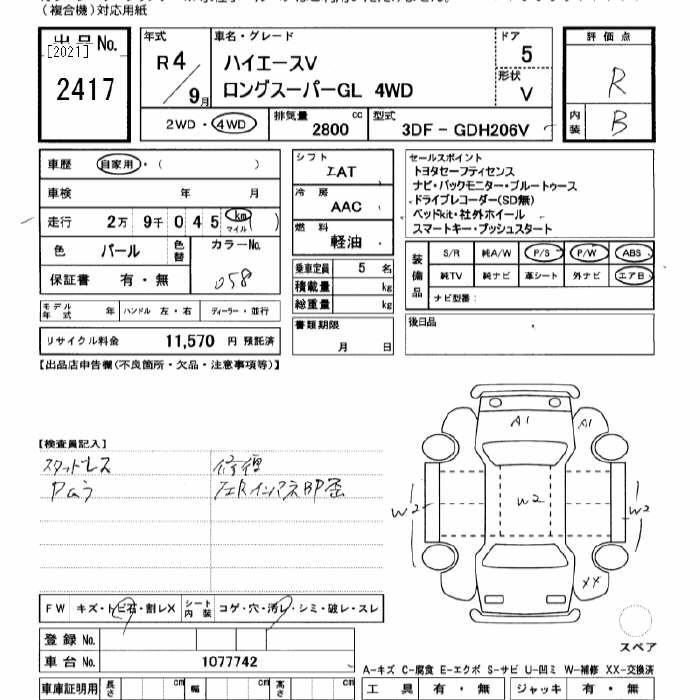 （複合機）対応用紙
出品No.
[2021]
2417
年式
R4/9月
車名・グレード
ハイエースV
ロングスーパーGL 4WD
ドア
5
形状
V
評価点
R
内装
B
2WD・4WD
排気量
2800 cc
型式
3DF - GDH206V
車歴 自家用・( )
車検 年 月
走行 2万 9千 0 4 5 (km マイル)
色 パール 色替 カラーNo.
保証書 有・無 058
シフト
IAT
冷房
AAC
燃料
軽油
乗車定員 5 名
積載量 kg
総重量 kg
書類期限
月 日
セールスポイント
トヨタセーフティセンス
ナビ・バックモニター・ブルートゥース
ドライブレコーダー(SD無)
ベッドkit・社外ホイール
スマートキー・プッシュスタート
装備品
S/R 純A/W P/S P/W ABS
純TV 純ナビ 革シート 外ナビ エアB
ナビ型番：
モデル年式 年 ハンドル 左・右 ディーラー・並行
リサイクル料金 11,570 円 預託済
後日品
【出品店申告欄(不良箇所・欠品・注意事項等)】
【検査員記入】
スタッドレス 修復
A1 A1
W2 W2 W2
XX
FW キズ・トビ石・割レX シート内装 コゲ・穴・汚レ・シミ・破レ・スレ
登録 No.
車台 No. 1077742
スペア
A-キズ C-腐食 E-エクボ S-サビ U-凹ミ W-補修 XX-交換済
車庫証明用 長さ cm 幅 cm 高さ cm
工具 有・無 ジャッキ 有・無